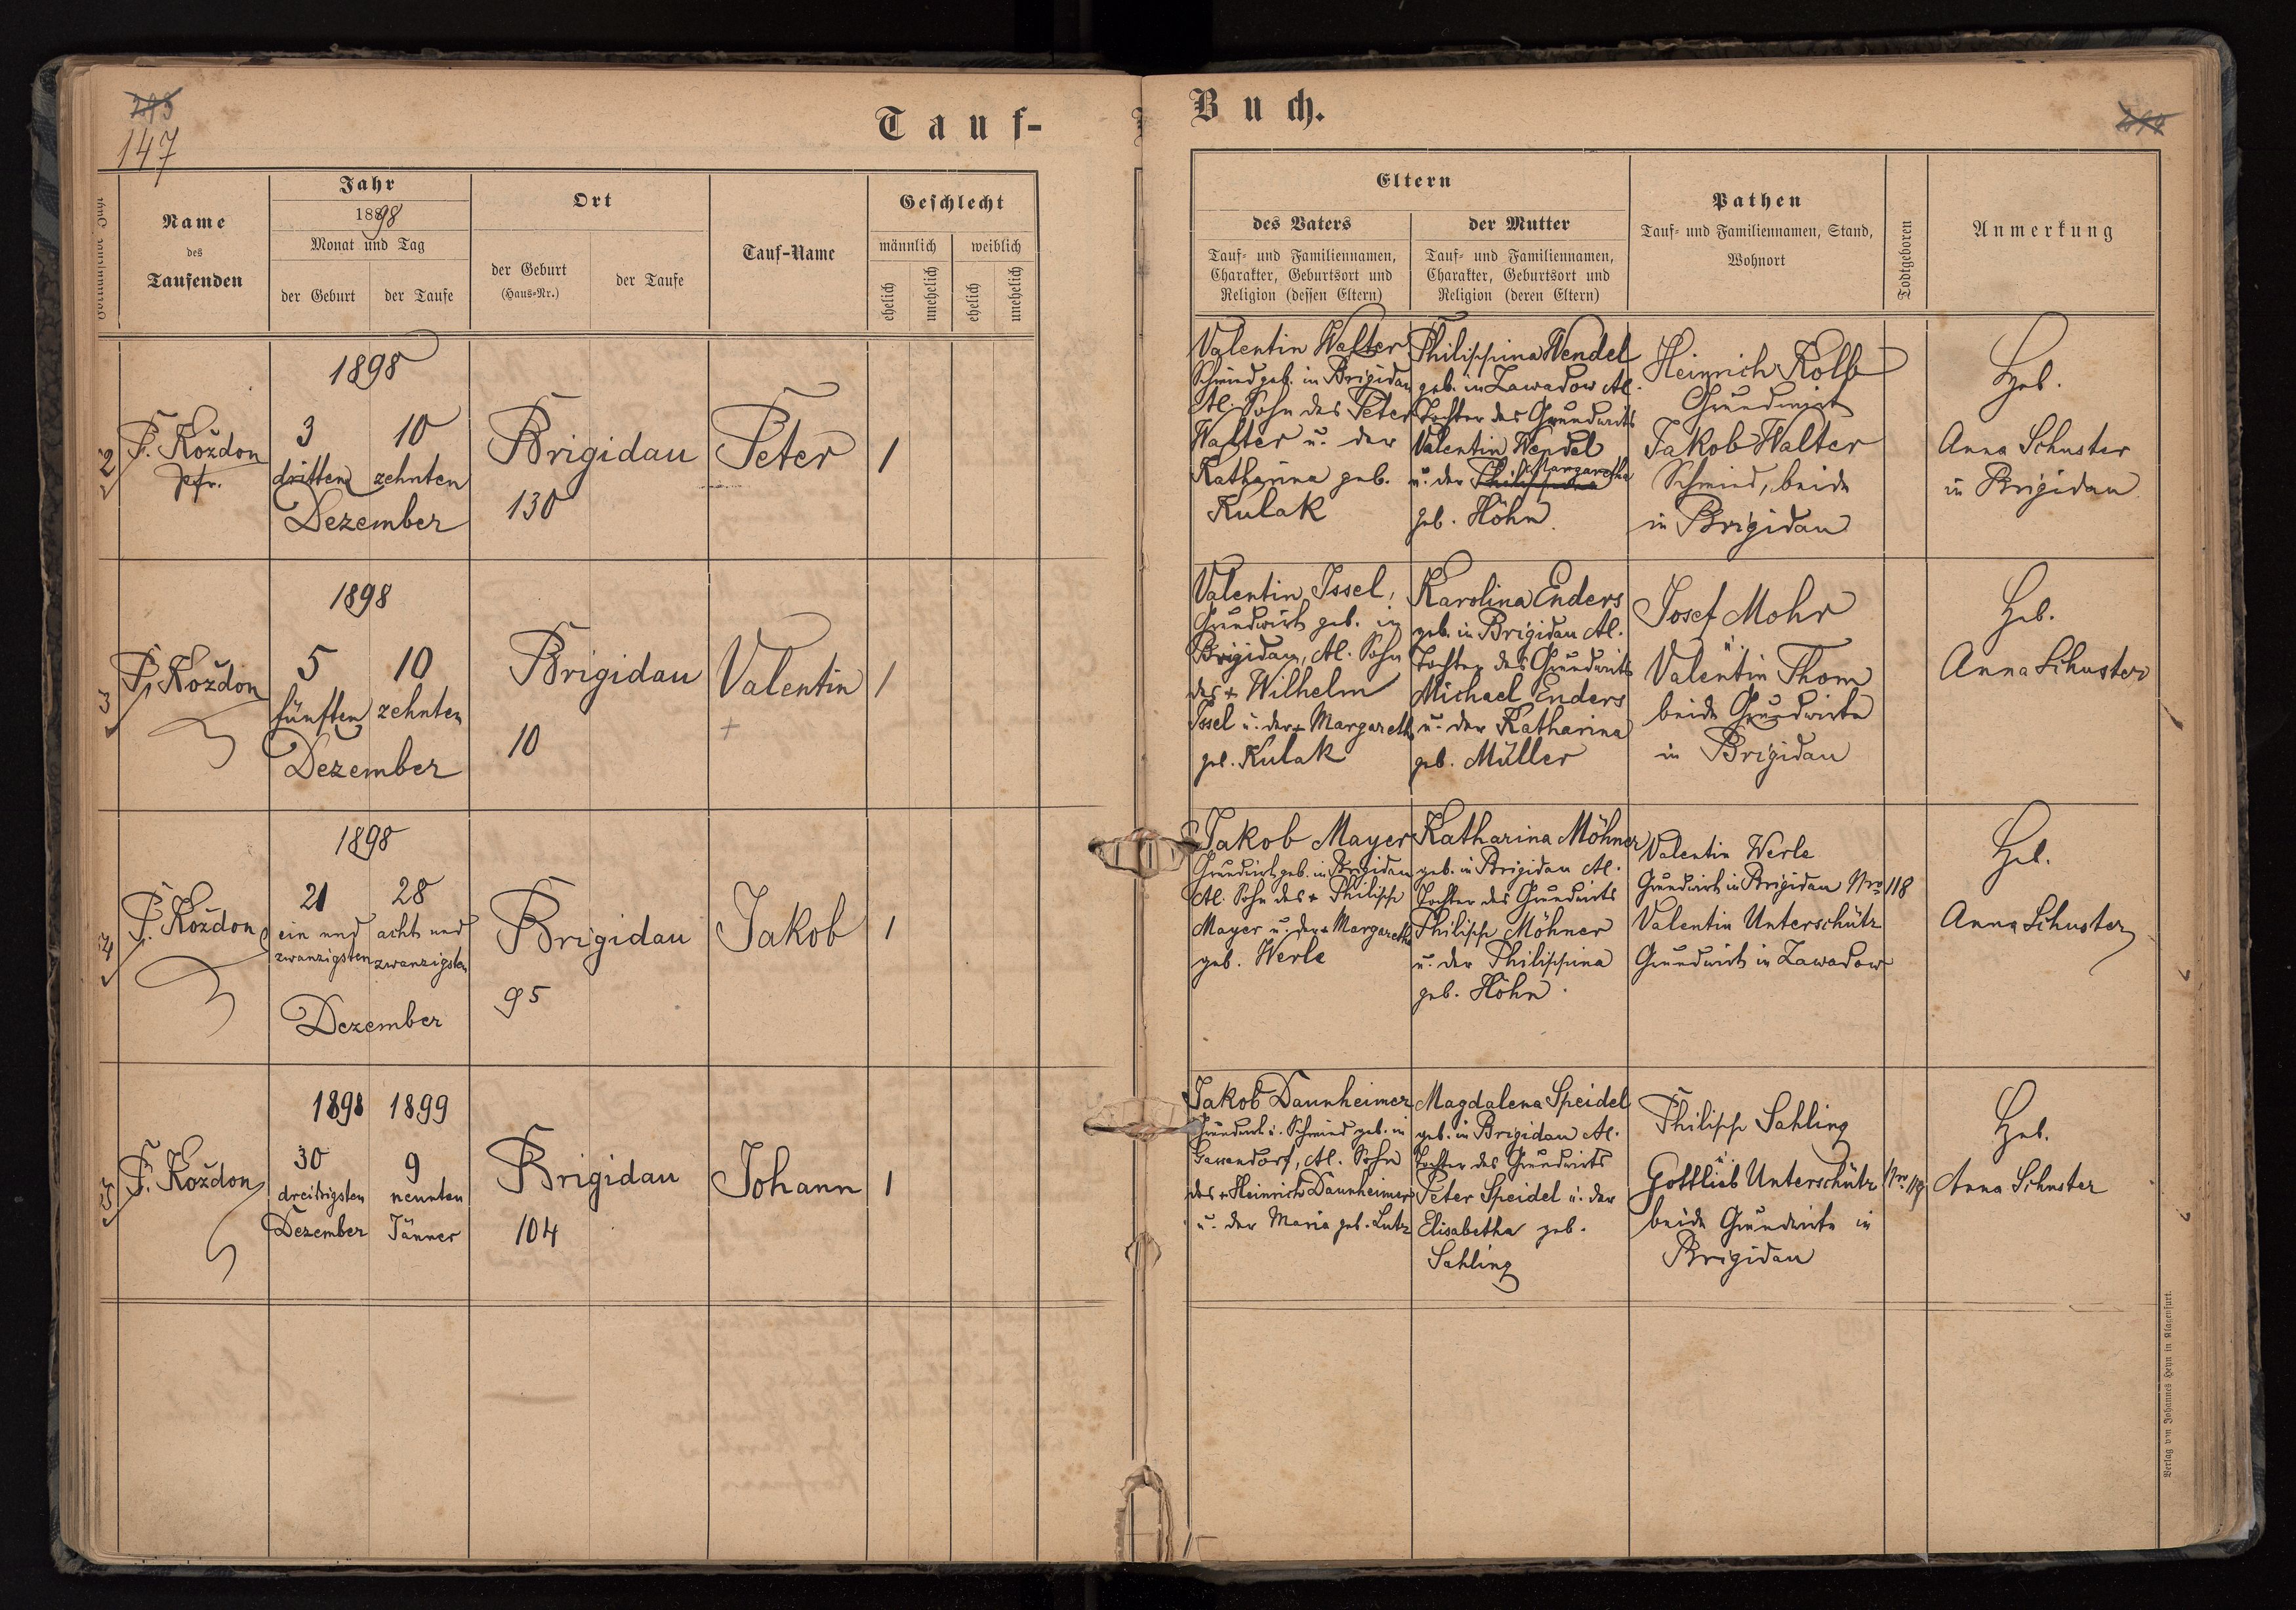 147
Tauf-
Buch.
Name
des
Taufenden
Jahr
1898
Monat und Tag
der Geburt
der Taufe
Ort
der Geburt
(Haus-Nr.)
der Taufe
Tauf-Name
Geschlecht
männlich
weiblich
ehelich
unehelich
ehelich
unehelich
Eltern
des Vaters
Tauf- und Familiennamen,
Charakter, Geburtsort und
Religion (dessen Eltern)
der Mutter
Tauf- und Familiennamen,
Charakter, Geburtsort und
Religion (deren Eltern)
Pathen
Tauf- und Familiennamen, Stand,
Wohnort
Todtgeboren
Anmerkung
2
F. Koždon
Pfr.
1898
3
dritten
10
zehnten
Dezember
Brigidau
130
Peter
1
Valentin Walter
Schmied geb. in Brigidau
Al. Sohn des Peter
Walter u. der
Katharina geb.
Kulak
Philippina Wendel
geb. in Zawadow Al.
Tochter des Grundwirts
Valentin Wendel
u. der Philippina Margaretha
geb. Höhn.
Heinrich Kolb
Grundwirt
Jakob Walter
Schmied, beide
in Brigidau
Heb.
Anna Schuster
in Brigidau
3
F. Koždon
1898
5
fünften
10
zehnten
Dezember
Brigidau
10
Valentin
+
1
Valentin Issel,
Grundwirt geb. in
Brigidau, Al. Sohn
des + Wilhelm
Issel u. der + Margareth
geb. Kulak
Karolina Enders
geb. in Brigidau Al.
Tochter des Grundwirts
Michael Enders
u. der Katharina
geb. Müller
Josef Mohr
u.
Valentin Thom
beide Grundwirte
in Brigidau
Heb.
Anna Schuster
4
F. Koždon
1898
21
ein und
zwanzigsten
28
acht und
zwanzigsten
Dezember
Brigidau
95
Jakob
1
Jakob Mayer
Grundwirt geb. in Brigidau
Al. Sohn des + Philipp
Mayer u. der + Margaretha
geb. Werle
Katharina Möhner
geb. in Brigidau Al.
Tochter des Grundwirts
Philipp Möhner
u. der Philippina
geb. Höhn.
Valentin Werle
Grundwirt in Brigidau Nro 118
Valentin Unterschütz
Grundwirt in Zawadow
Heb.
Anna Schuster
5
F. Koždon
1898
30
dreißigsten
Dezember
1899
9
neunten
Jänner
Brigidau
104
Johann
1
Jakob Daunheimer
Grundwirt u. Schmied geb. in
Gassendorf, Al. Sohn
des + Heinrich Daunheimer
u. der Maria geb. Lutz
Magdalena Speidel
geb. in Brigidau Al.
Tochter des Grundwirts
Peter Speidel u. der
Elisabetha geb.
Sahling
Philipp Sahling
u.
Gottlieb Unterschütz Nro 119
beide Grundwirte in
Brigidau
Heb.
Anna Schuster
Verlag von Johannes Heyn in Klagenfurt.